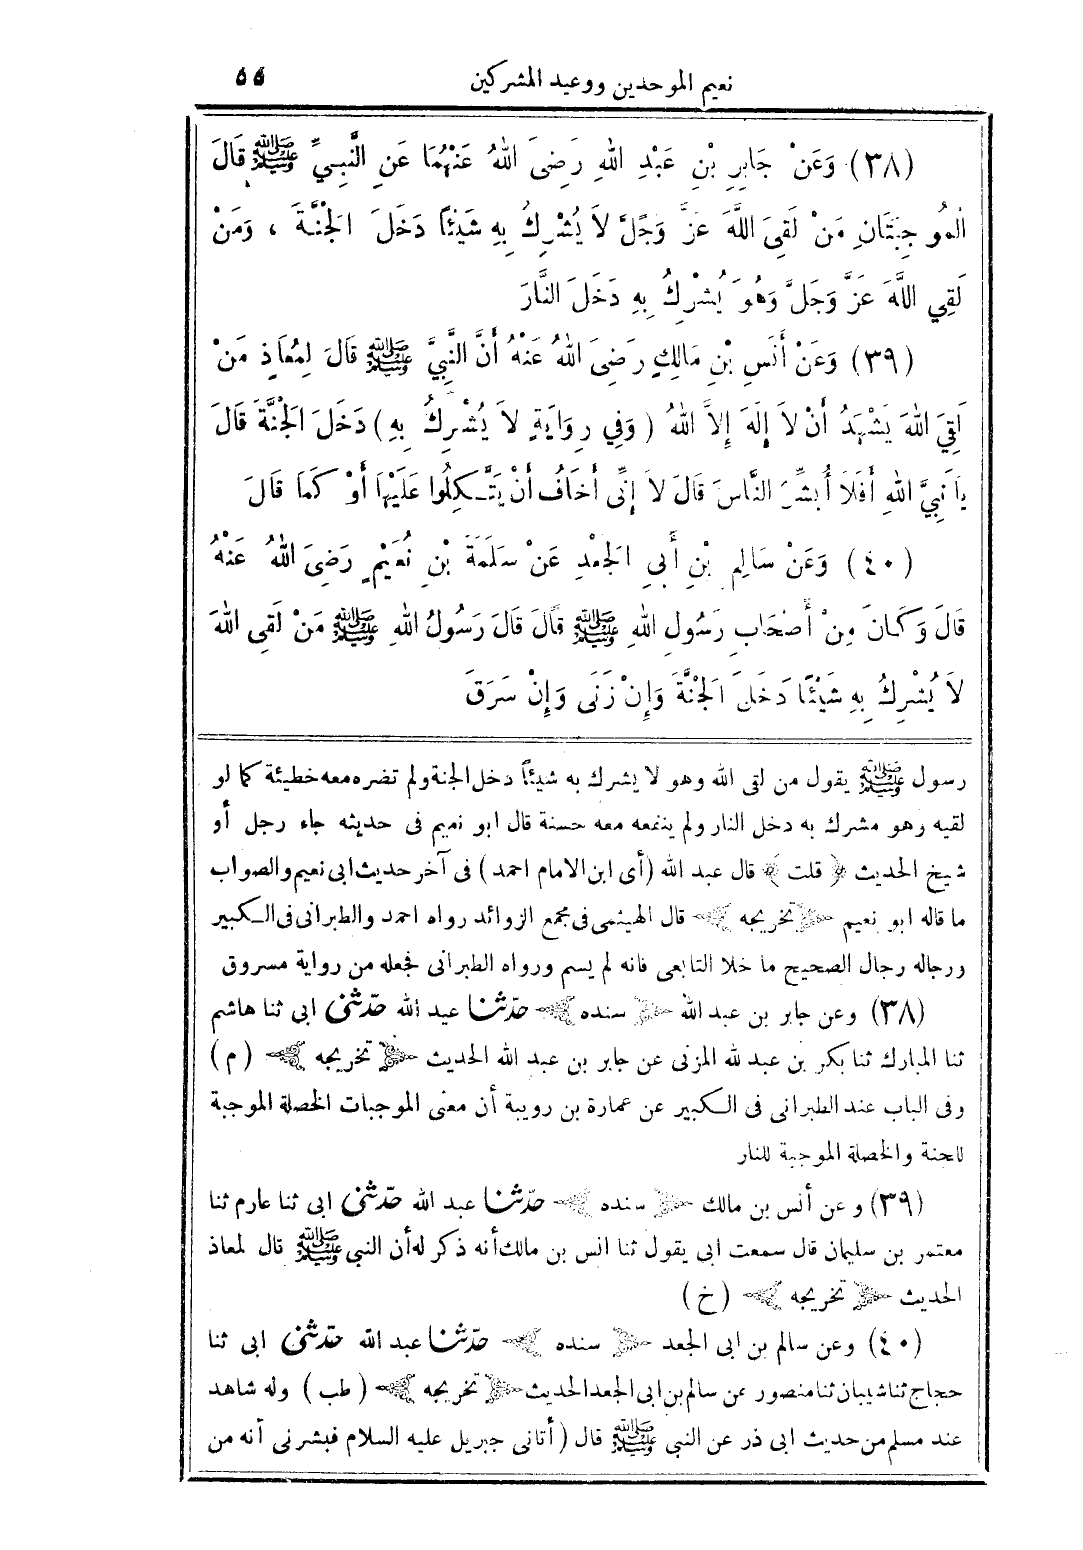 نعيم الموحدين ووعيد المشركين ٥٥
(٣٨) وَعَنْ جَابِرِ بْنِ عَبْدِ اللهِ رَضِىَ اللهُ عَنْهُمَا عَنِ النَّبِيِّ ﷺ قَالَ
الْمُوجِبَتَانِ مَنْ لَقِىَ اللَّهَ عَزَّ وَجَلَّ لَا يُشْرِكُ بِهِ شَيْئًا دَخَلَ الْجَنَّةَ ، وَمَنْ
لَقِي اللَّهَ عَزَّ وَجَلَّ وَهُوَ يُشْرِكُ بِهِ دَخَلَ النَّارَ
(٣٩) وَعَنْ أَنَسِ بْنِ مَالِكٍ رَضِىَ اللهُ عَنْهُ أَنَّ النَّبِيَّ ﷺ قَالَ لِمُعَاذٍ مَنْ
لَقِيَ اللهَ يَشْهَدُ أَنْ لَا إِلَهَ إِلاَّ اللهُ ( وَفِي رِوَايَةٍ لَا يُشْرِكُ بِهِ ) دَخَلَ الْجَنَّةَ قَالَ
يَا نَبِيَّ اللهِ أَفَلَا أُبَشِّرُ النَّاسَ قَالَ لَا إِنِّى أَخَافُ أَنْ يَتَّكِلُوا عَلَيْهَا أَوْ كَمَا قَالَ
(٤٠) وَعَنْ سَالِمِ بْنِ أَبِي الْجَعْدِ عَنْ سَلَمَةَ بْنِ نُعَيْمٍ رَضِىَ اللهُ عَنْهُ
قَالَ وَكَانَ مِنْ أَصْحَابِ رَسُولِ اللهِ ﷺ قَالَ قَالَ رَسُولُ اللهِ ﷺ مَنْ لَقِىَ اللهَ
لَا يُشْرِكُ بِهِ شَيْئًا دَخَلَ الْجَنَّةَ وَإِنْ زَنَى وَإِنْ سَرَقَ
رسول ﷺ يقول من لقى الله وهو لا يشرك به شيئاً دخل الجنة ولم تضره معه خطيئة كما لو
لقيه وهو مشرك به دخل النار ولم ينفعه معه حسنة قال ابو نعيم فى حديثه جاء رجل أو
شيخ الحديث ﴿ قلت ﴾ قال عبد الله (أى ابن الامام احمد) فى آخر حديث ابى نعيم والصواب
ما قاله ابو نعيم ﴿ تخريجه ﴾ قال الهيثمى فى مجمع الزوائد رواه احمد والطبرانى فى الكبير
ورجاله رجال الصحيح ما خلا التابعى فانه لم يسم ورواه الطبرانى فجعله من رواية مسروق
(٣٨) وعن جابر بن عبد الله ﴿ سنده ﴾ حدّثنا عبد الله حدّثنى ابى ثنا هاشم
ثنا المبارك ثنا بكر بن عبد لله المزنى عن جابر بن عبد الله الحديث ﴿ تخريجه ﴾ (م)
وفى الباب عند الطبرانى فى الكبير عن عمارة بن رويبة أن معنى الموجبات الخصلة الموجبة
للجنة والخصلة الموجبة للنار
(٣٩) وعن أنس بن مالك ﴿ سنده ﴾ حدّثنا عبد الله حدّثنى ابى ثنا عارم ثنا
معتمر بن سليمان قال سمعت ابى يقول ثنا انس بن مالك أنه ذكر له أن النبى ﷺ قال لمعاذ
الحديث ﴿ تخريجه ﴾ (خ)
(٤٠) وعن سالم بن ابى الجعد ﴿ سنده ﴾ حدّثنا عبد الله حدّثنى ابى ثنا
حجاج ثنا شيبان ثنا منصور عن سالم بن ابى الجعد الحديث ﴿ تخريجه ﴾ (طب) وله شاهد
عند مسلم من حديث ابى ذر عن النبى ﷺ قال (أتانى جبريل عليه السلام فبشرنى أنه من